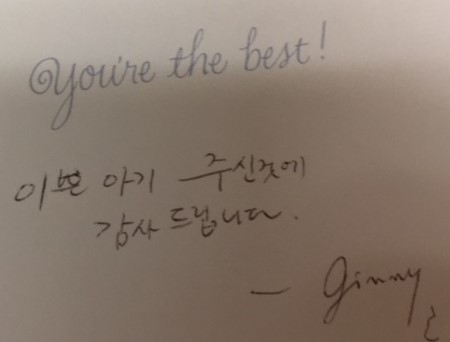 You're the best!
이쁜 아기 주신것에
감사 드립니다.
— Ginny